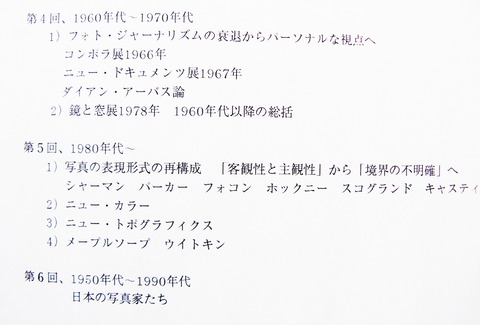 第4回、1960年代~1970年代
1) フォト・ジャーナリズムの衰退からパーソナルな視点へ
コンポラ展1966年
ニュー・ドキュメンツ展1967年
ダイアン・アーバス論
2) 鏡と窓展1978年 1960年代以降の総括
第5回、1980年代~
1) 写真の表現形式の再構成 「客観性と主観性」から「境界の不明確」へ
シャーマン パーカー フォコン ホックニー スコグランド キャスティ
2) ニュー・カラー
3) ニュー・トポグラフィクス
4) メープルソープ ウイトキン
第6回、1950年代~1990年代
日本の写真家たち